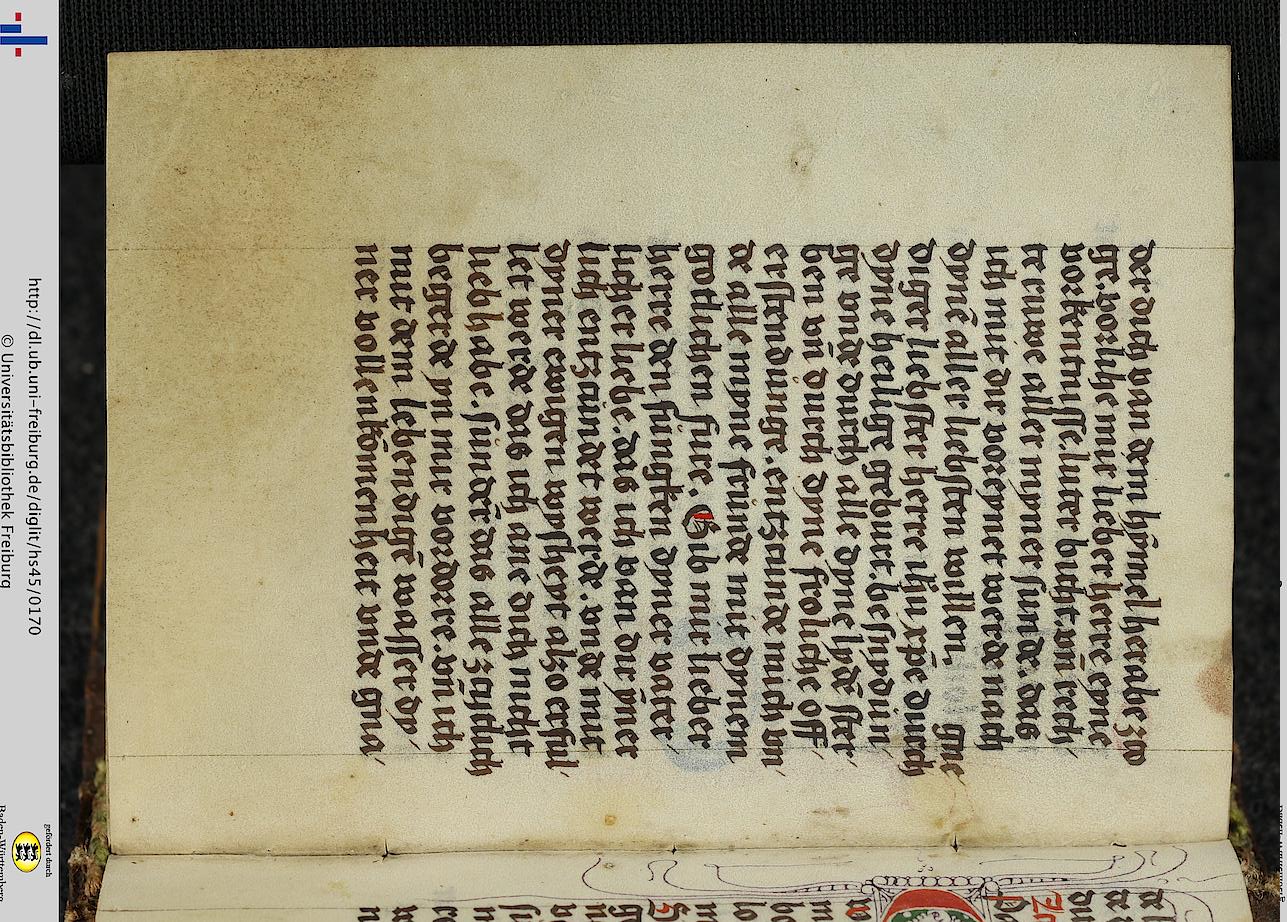 der dich van dem hymel herabe zo
ge. vorlyhe mir lieber herre eyne
vorkentnysse luter bicht. vn̄ rech
te ruwe aller myner sunde das
ich mit dir voreynet werde nach
dynē aller liebsten willen, gne
diger liebster herre ihū xp̄e durch
dyne heilige geburt. beschydun
ge vnde durch alle dyne lydē ster
ben vn̄ durch dyne froliche off
erstendunge. entzunde mich in
de alle myne frunde mit dynem
gotlichen fure. Gib mir lieber
herre den fungken dyner vater
licher liebe das ich van dir ȳner
lich entzundet werde. vnde mit
dyner ewigen wyßheyt alzo erful
let werde das ich ane dich nicht
lieb habe. sundēr das alle zytlich
begerde yn mir vordorre. vn̄ ich
mit dem lebendigē wasser dy
ner vollenkomenheit vnde gna
http://dl.ub.uni-freiburg.de/diglit/hs45/0170
© Universitätsbibliothek Freiburg
gefördert durch
Baden-Württemberg